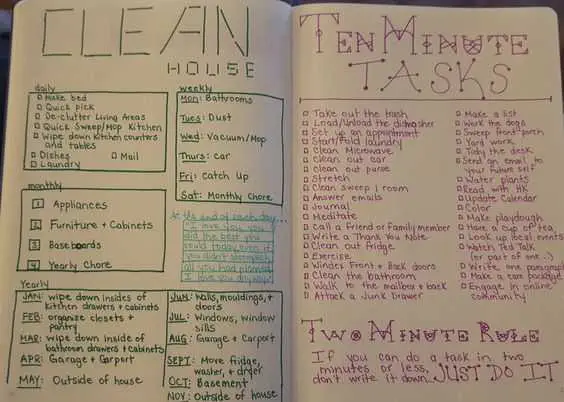 CLEAN
HOUSE
daily
Make bed
Quick pick
De-clutter Living Areas
Quick Sweep/Mop Kitchen
Wipe down Kitchen counters
and tables
Dishes
Mail
Laundry
weekly
Mon: Bathrooms
Tues: Dust
Wed: Vacuum/Mop
Thurs: car
Fri: Catch Up
Sat: Monthly Chore
monthly
1 Appliances
2 Furniture + Cabinets
3 Baseboards
4 Yearly Chore
At the end of each day...
"I love you, you
did the best you
could today even if
you didn't accomplish
all you had planned.
I love you anyway."
Yearly
JAN: wipe down insides of
kitchen drawers + cabinets
FEB: organize closets +
pantry
MAR: wipe down inside of
bathroom drawers + cabinets
APR: Garage + Carport
MAY: Outside of house
JUN: Walls, mouldings, +
doors
JUL: Windows, window
sills
AUG: Garage + Carport
SEPT: Move fridge,
washer, + dryer
OCT: Basement
NOV: Outside of house
TEN MINUTE
TASKS
Take out the trash
Load/Unload the dishwasher
Set up an appointment
Start/Fold laundry
Clean Microwave
Clean out car
Clean out purse
Stretch
Clean sweep 1 room
Answer emails
Journal
Meditate
Call a friend or family member
Write a Thank You Note
Clean out fridge
Exercise
Windex Front + Back doors
Clean the bathroom
Walk to the mailbox + back
Attack a Junk Drawer
Make a list
Work the dogs
Sweep front porch
Yard work
Tidy the desk
Send an email to
your future self
Water plants
Read with HK
Update Calendar
Color
Make playdough
Have a cup of tea
Look up local events
Watch Ted Talk
(or part of one..)
Write one paragraph
Make a care package
Engage in online
community
TWO MINUTE RULE
If you can do a task in two
minutes or less,
don't write it down. JUST DO IT